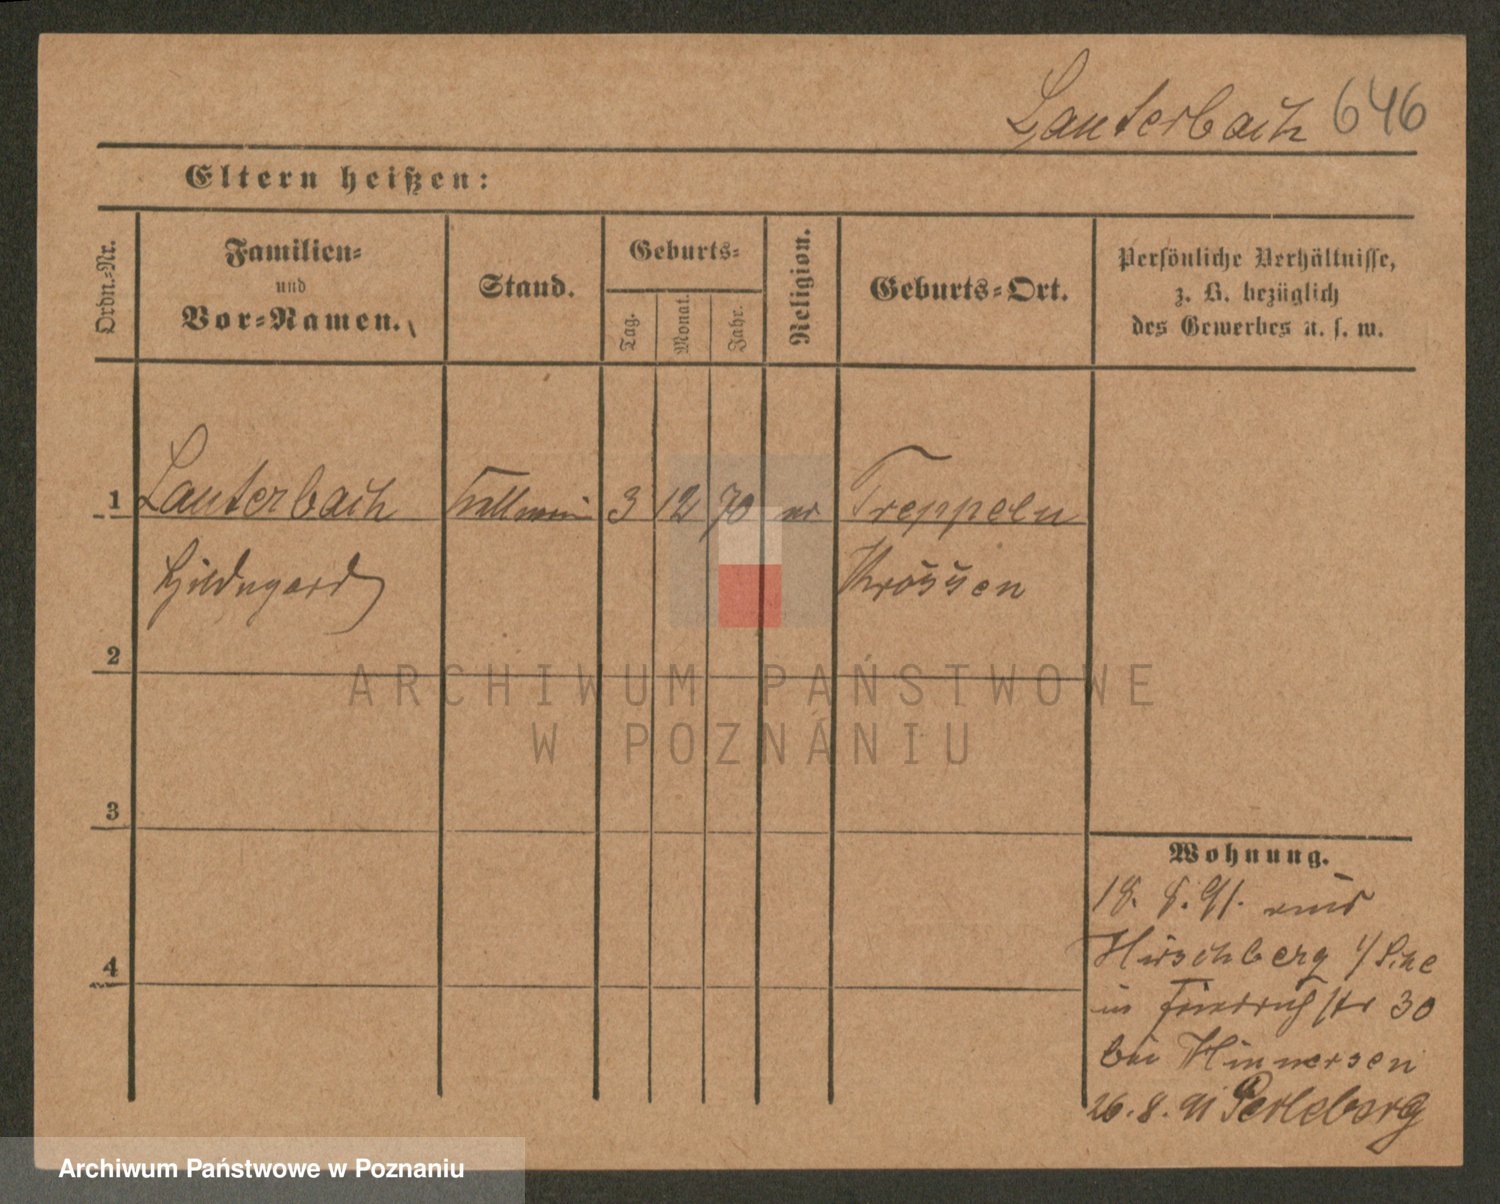 Lauterbach 646
Eltern heißen:
Ordn.-Nr.
Familien-
und
Vor-Namen.
Stand.
Geburts-
Tag.
Monat.
Jahr.
Religion.
Geburts-Ort.
Persönliche Verhältnisse,
z. B. bezüglich
des Gewerbes u. s. w.
1 Lauterbach 3 12 70 Treppeln
Hildegard Krossen
2
3
4
Wohnung.
18. 8. 91. aus
Hirschberg
in Friedrichstr 30
bei Hinnersen
26. 8. 91 Perleberg
ARCHIWUM PAŃSTWOWE
W POZNANIU
Archiwum Państwowe w Poznaniu